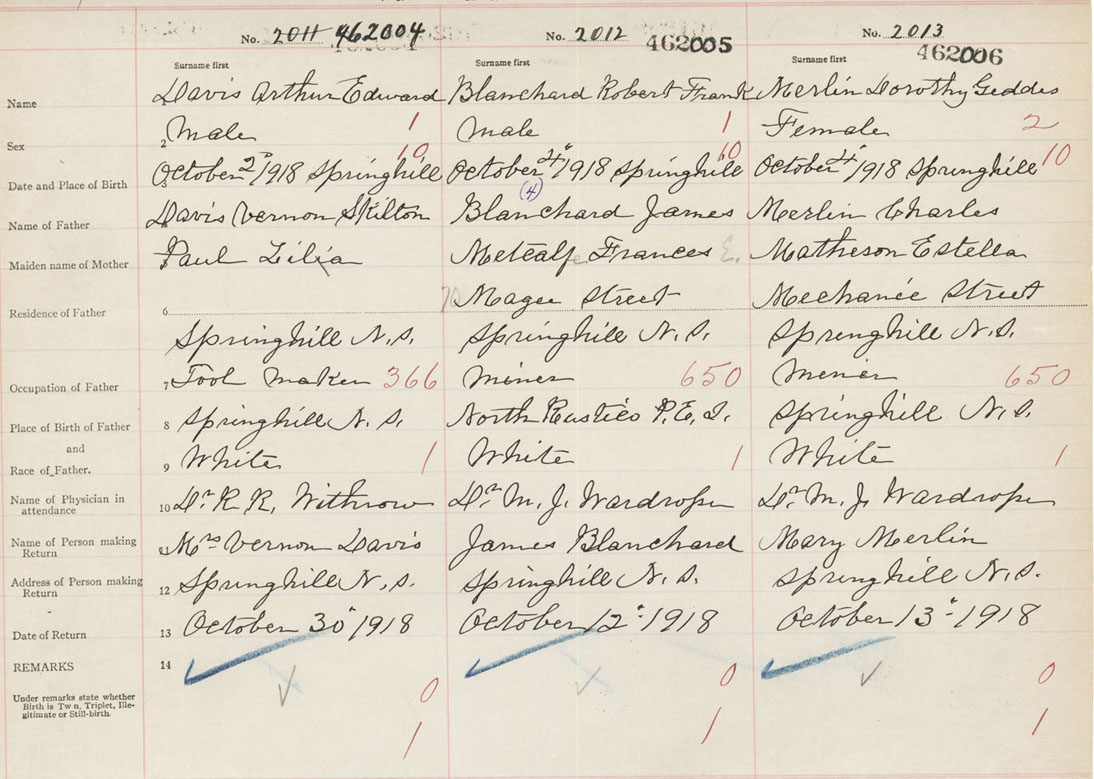 No. 2011 462004 No. 2012 462005 No. 2013 462006
Surname first Surname first Surname first
Name Davis Arthur Edward Blanchard Robert Frank Merlin Dorothy Geddes
Sex 2 Male 1 Male 1 Female 2
Date and Place of Birth 3 October 2" 1918 Springhill 10 October 4" 1918 Springhill 10 October 4" 1918 Springhill 10
Name of Father 4 Davis Vernon Skilton (4) Blanchard James Merlin Charles
Maiden name of Mother Paul Lilia Metcalfe Frances E. Matheson Estella
Residence of Father 6 Magee Street Mechanic Street
Springhill N.S. Springhill N.S. Springhill N.S.
Occupation of Father 7 Tool Maker 366 Miner 650 Miner 650
Place of Birth of Father 8 Springhill N.S. North Rustico P.E.I. Springhill N.S.
and
Race of Father. 9 White 1 White 1 White 1
Name of Physician in attendance 10 Dr R.R. Withrow Dr M.J. Wardrope Dr M.J. Wardrope
Name of Person making Return Mrs Vernon Davis James Blanchard Mary Merlin
Address of Person making Return 12 Springhill N.S. Springhill N.S. Springhill N.S.
Date of Return 13 October 30" 1918 October 12" 1918 October 13" 1918
REMARKS 14
Under remarks state whether Birth is Twin, Triplet, Ille-
gitimate or Still-birth.
0 0 0
1 1 1